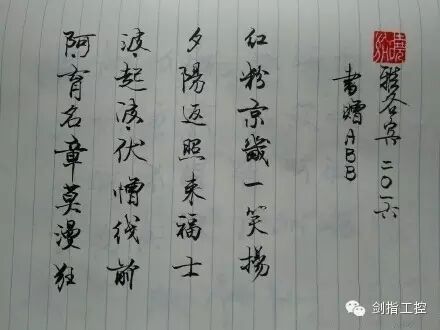 阿育名章莫漫狂
波起波伏憎线前
夕陽返照来福士
红粉京畿一笑扬
書赠ABB
雅各宾二〇一六
剑指工控